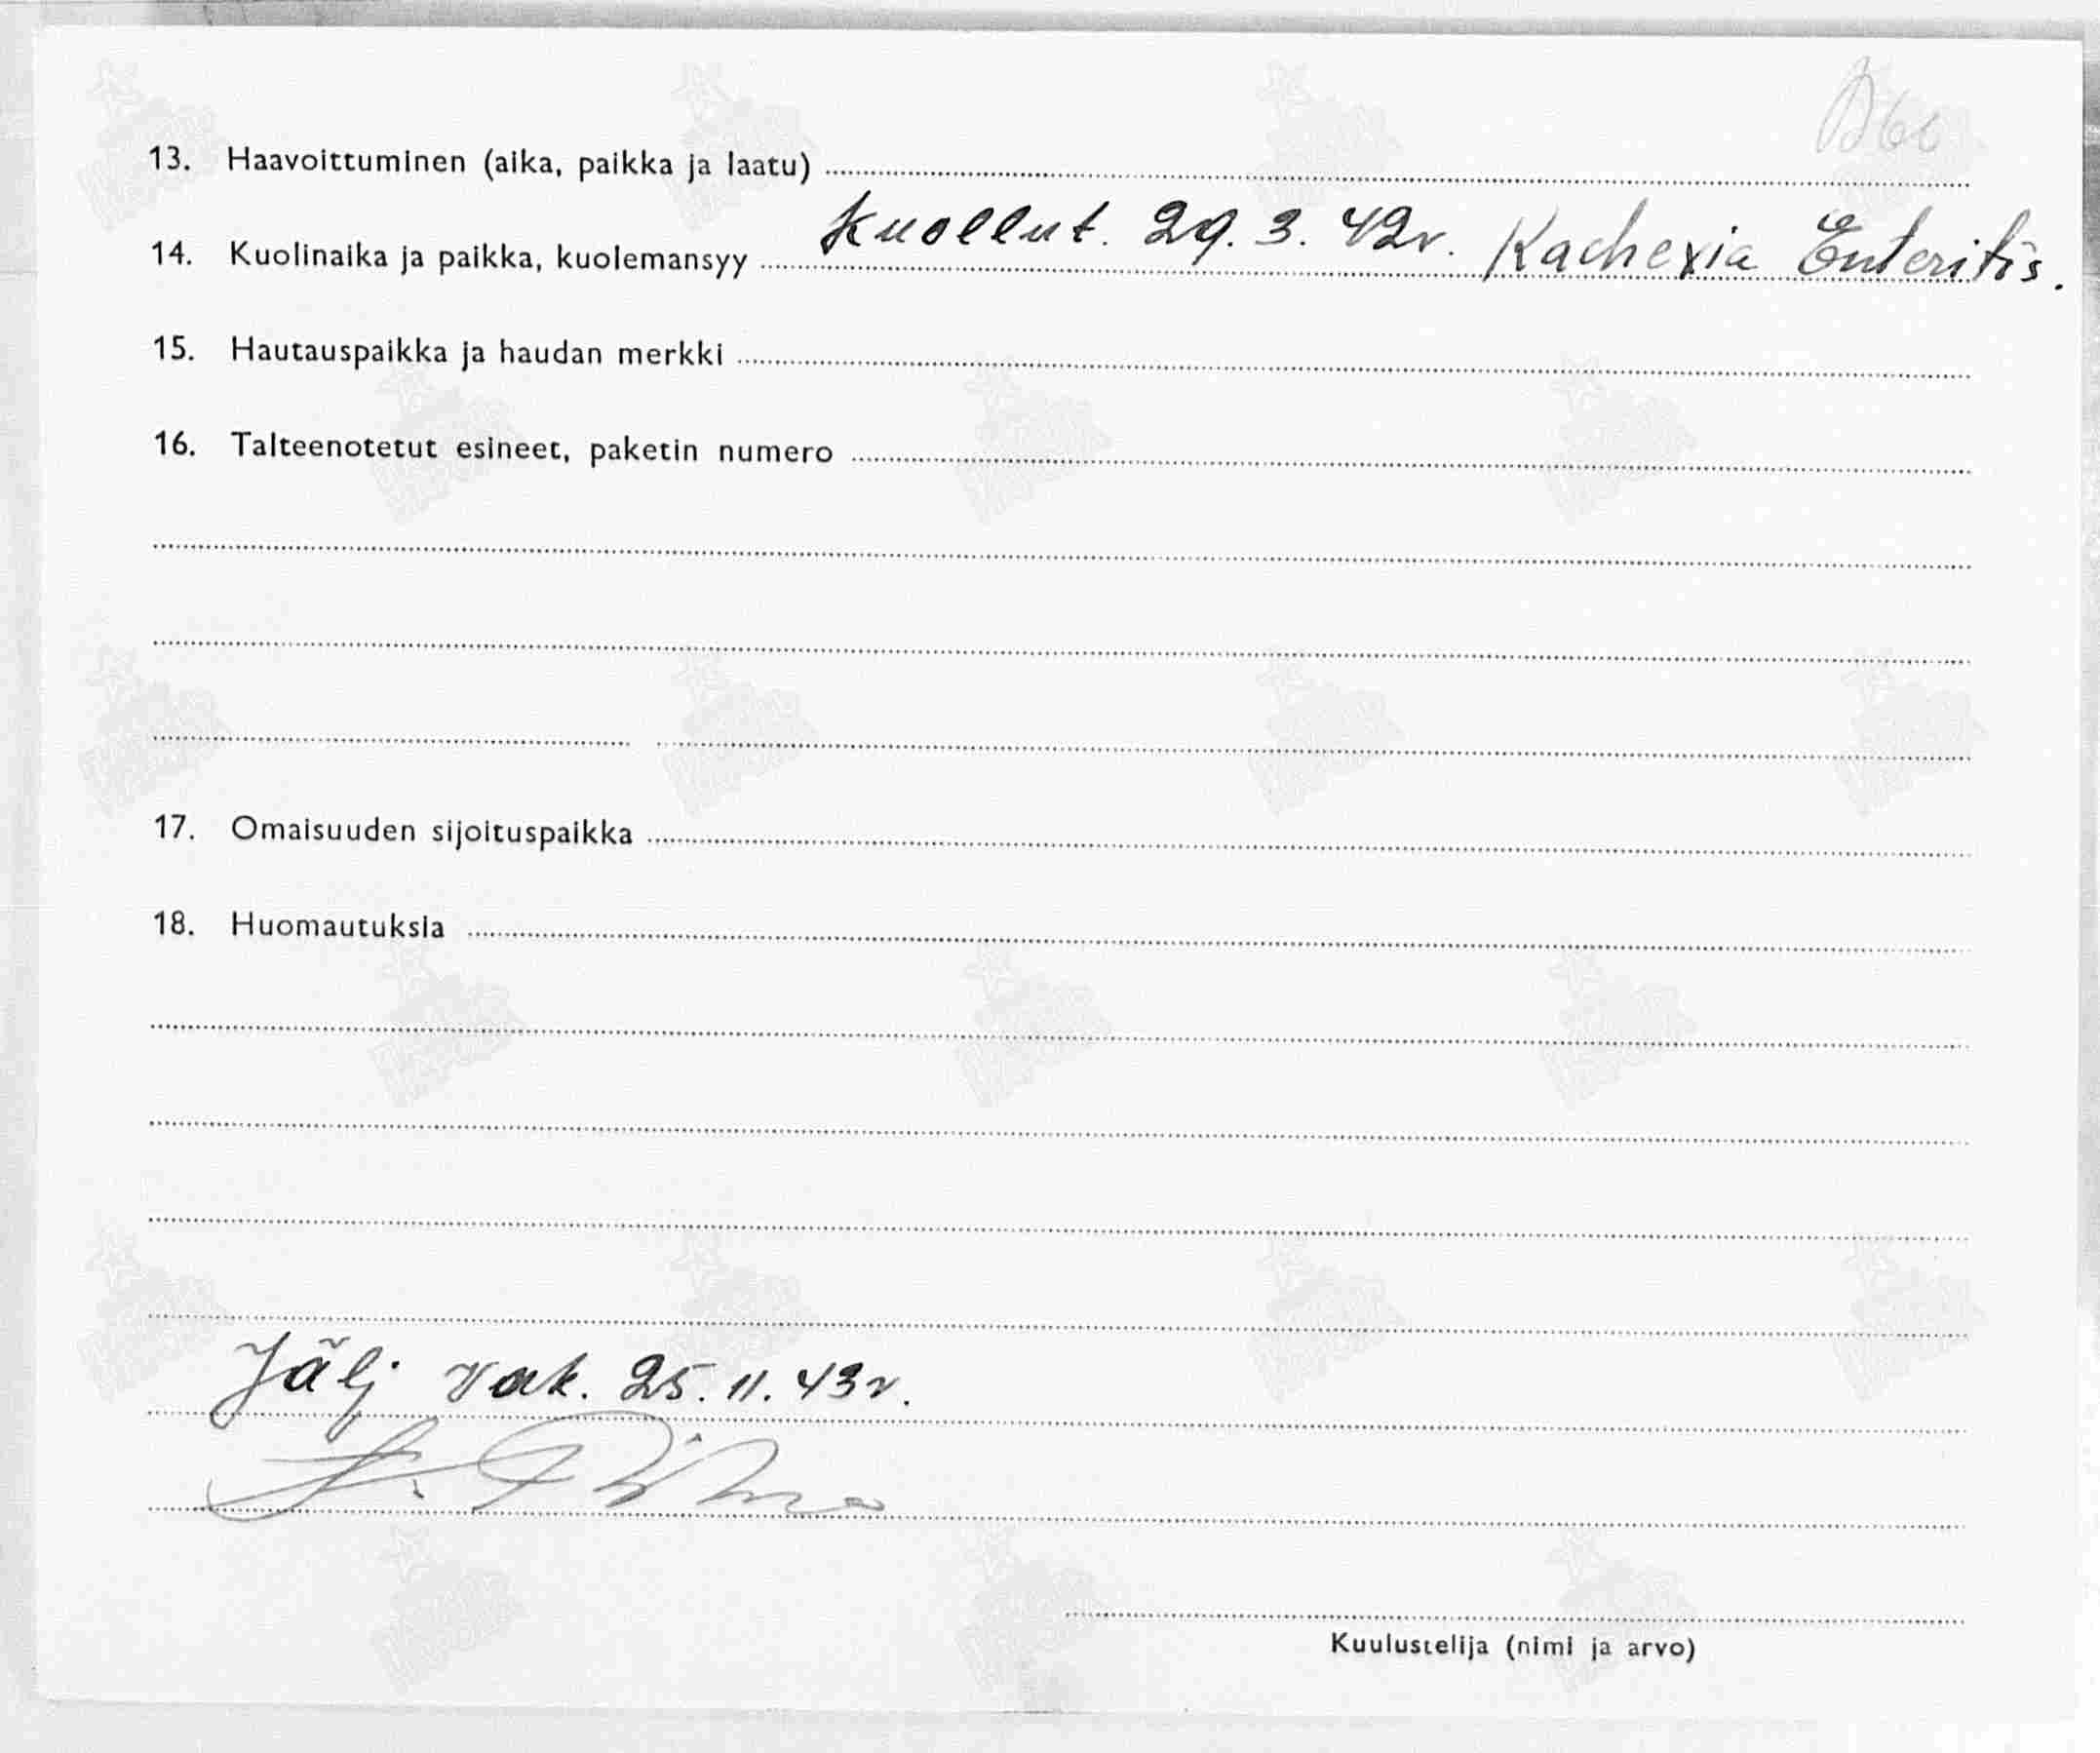 13. Haavoittuminen (aika, paikka ja laatu)
14. Kuolinaika ja paikka, kuolemansyy Kuollut. 29. 3. 42v. Kachexia Enteritis.
15. Hautauspaikka ja haudan merkki
16. Talteenotetut esineet, paketin numero
17. Omaisuuden sijoituspaikka
18. Huomautuksia
Jälj vak. 25. 11. 43v.
Kuulustelija (nimi ja arvo)